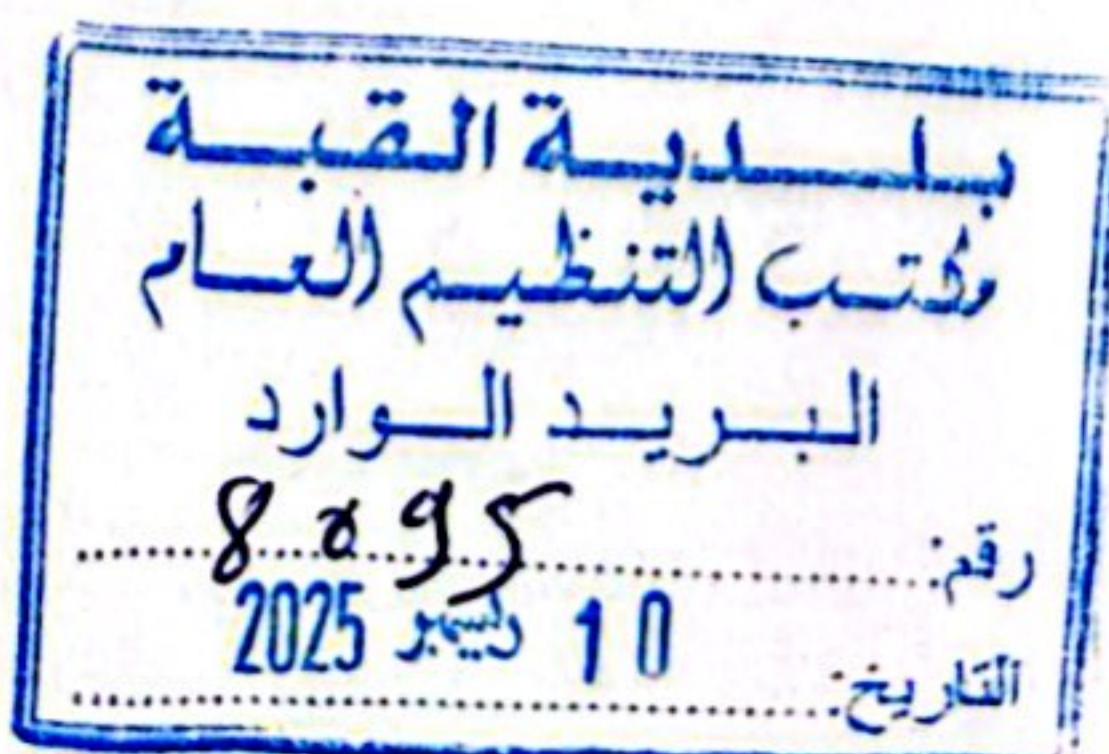 بلدية القبة
مكتب التنظيم العام
البريد الوارد
رقم: 8095
التاريخ: 10 ديسمبر 2025